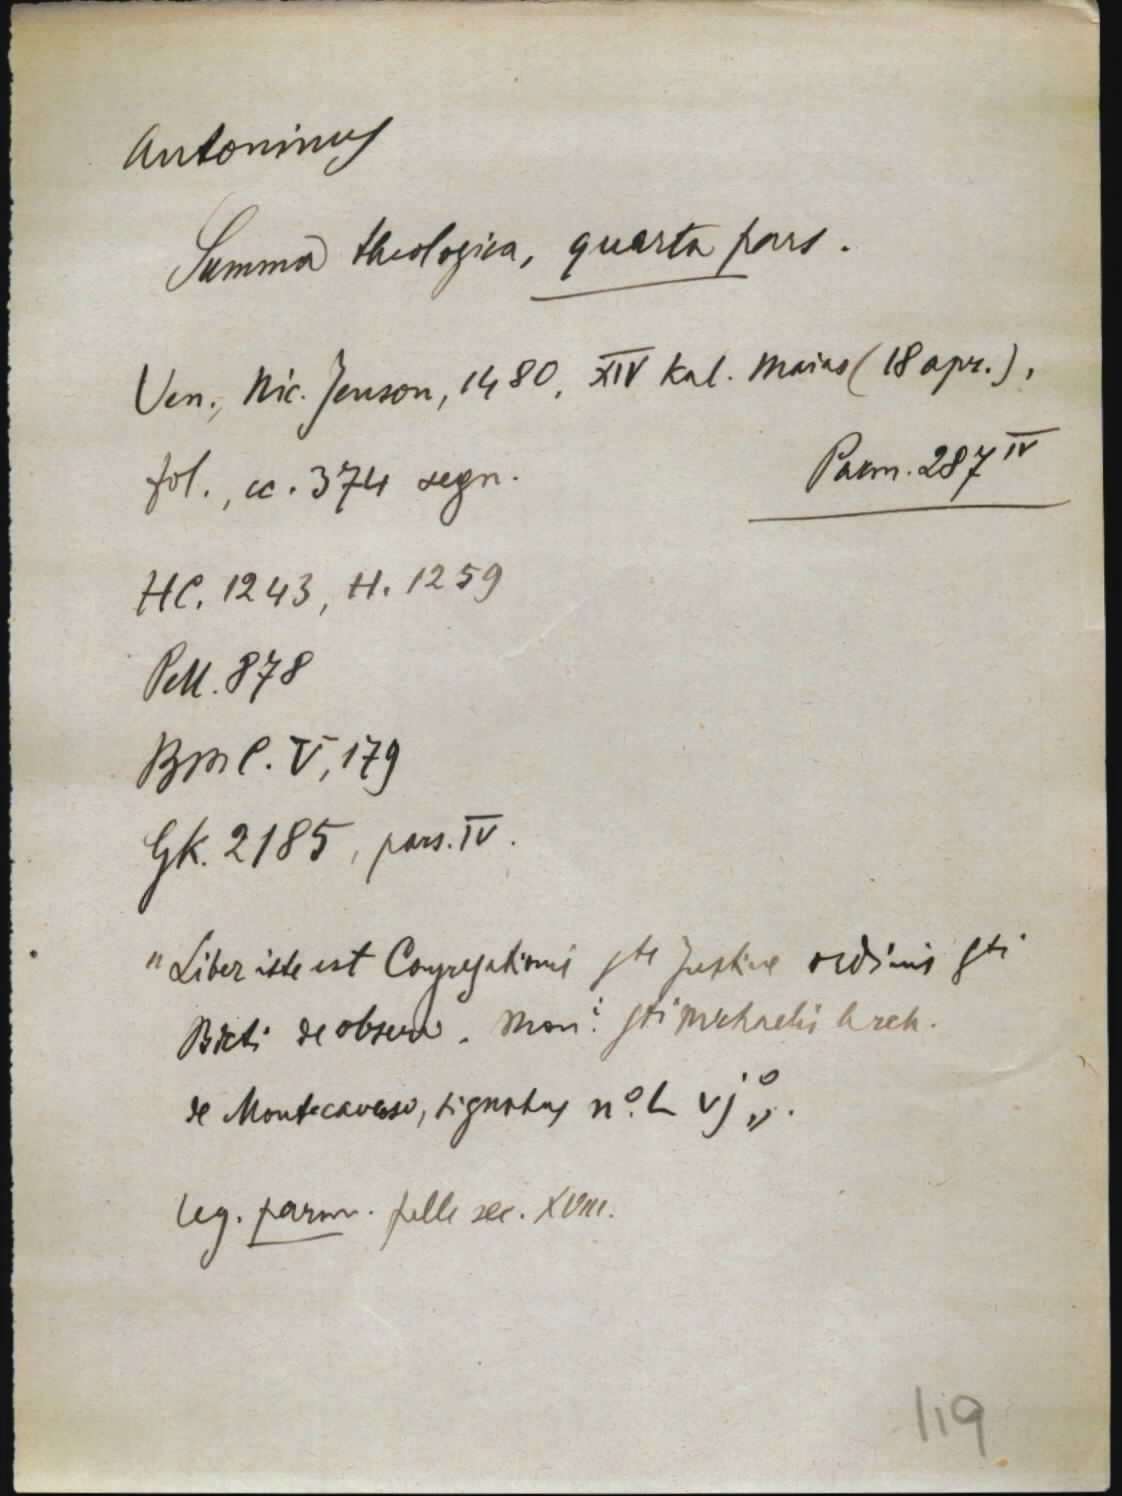 Antoninus
Summa theologica, quarta pars.
Ven., Nic. Jenson, 1480, XIV Kal. Maias (18 apr.),
fol., cc. 374 segn.
Parm. 287 IV
HC. 1243, H. 1259
Pell. 878
BMC. V, 179
GK. 2185, pars. IV.
"Liber iste est Congregationis Ste Justine ordinis Sti
Bndcti de observ. Moni: Sti Michaelis Arch.
de Montecaveoso, signatus nº. L vjº".
Leg. parm. pelle sec. XVIII.
119